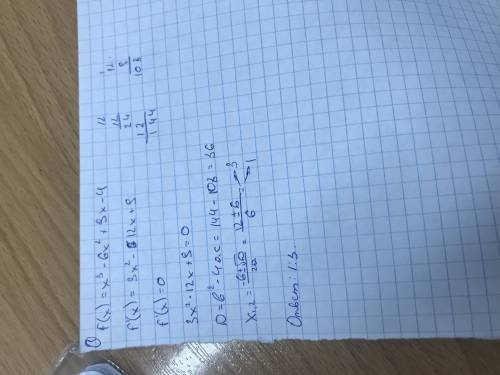 ① f(x) = x³ - 6x² + 9x - 4
f'(x) = 3x² - 12x + 9
f'(x) = 0
3x² - 12x + 9 = 0
D = b² - 4ac = 144 - 108 = 36
x₁,₂ = (-b ± √D)/2a = (12 ± 6)/6 = 3
1
Ответ: 1; 3
12
12
24
12
144
12
9
108